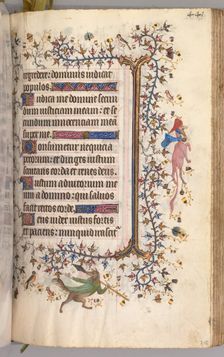 egredere: dominus iudicat
populos.
Iudica me domine secun
dum iusticiam meam: et se
cundum innocentiam meam
super me.
Consumetur nequicia
peccatorum: et diriges iustum
scrutans corda et renes deus.
Iustum adiutorium meum
a domino: qui saluos
facit rectos corde.
Deus iudex iustus fortis
et paciens: nunquid irascit